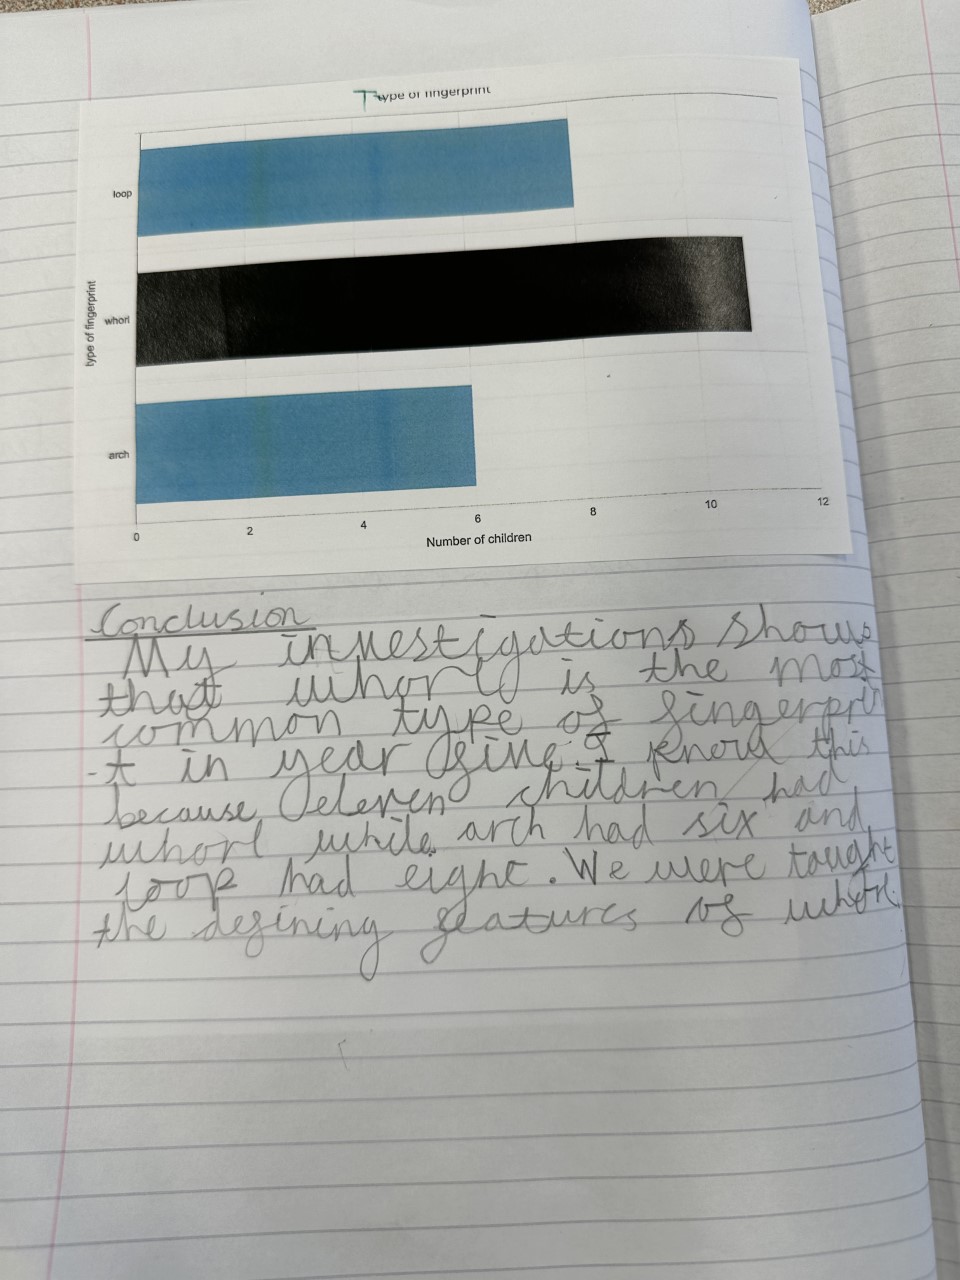 Type of fingerprint
loop
whorl
arch
type of fingerprint
0 2 4 6 8 10 12
Number of children
Conclusion
My investigations shows
that whorl is the most
common type of fingerpri
-t in year five. I know this
because eleven children had
whorl while arch had six and
loop had eight. We were taught
the defining features of whorl.